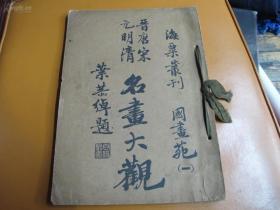 海粟叢刊
國畫苑(一)
晉唐宋
元明清
名畫大觀
葉恭綽題